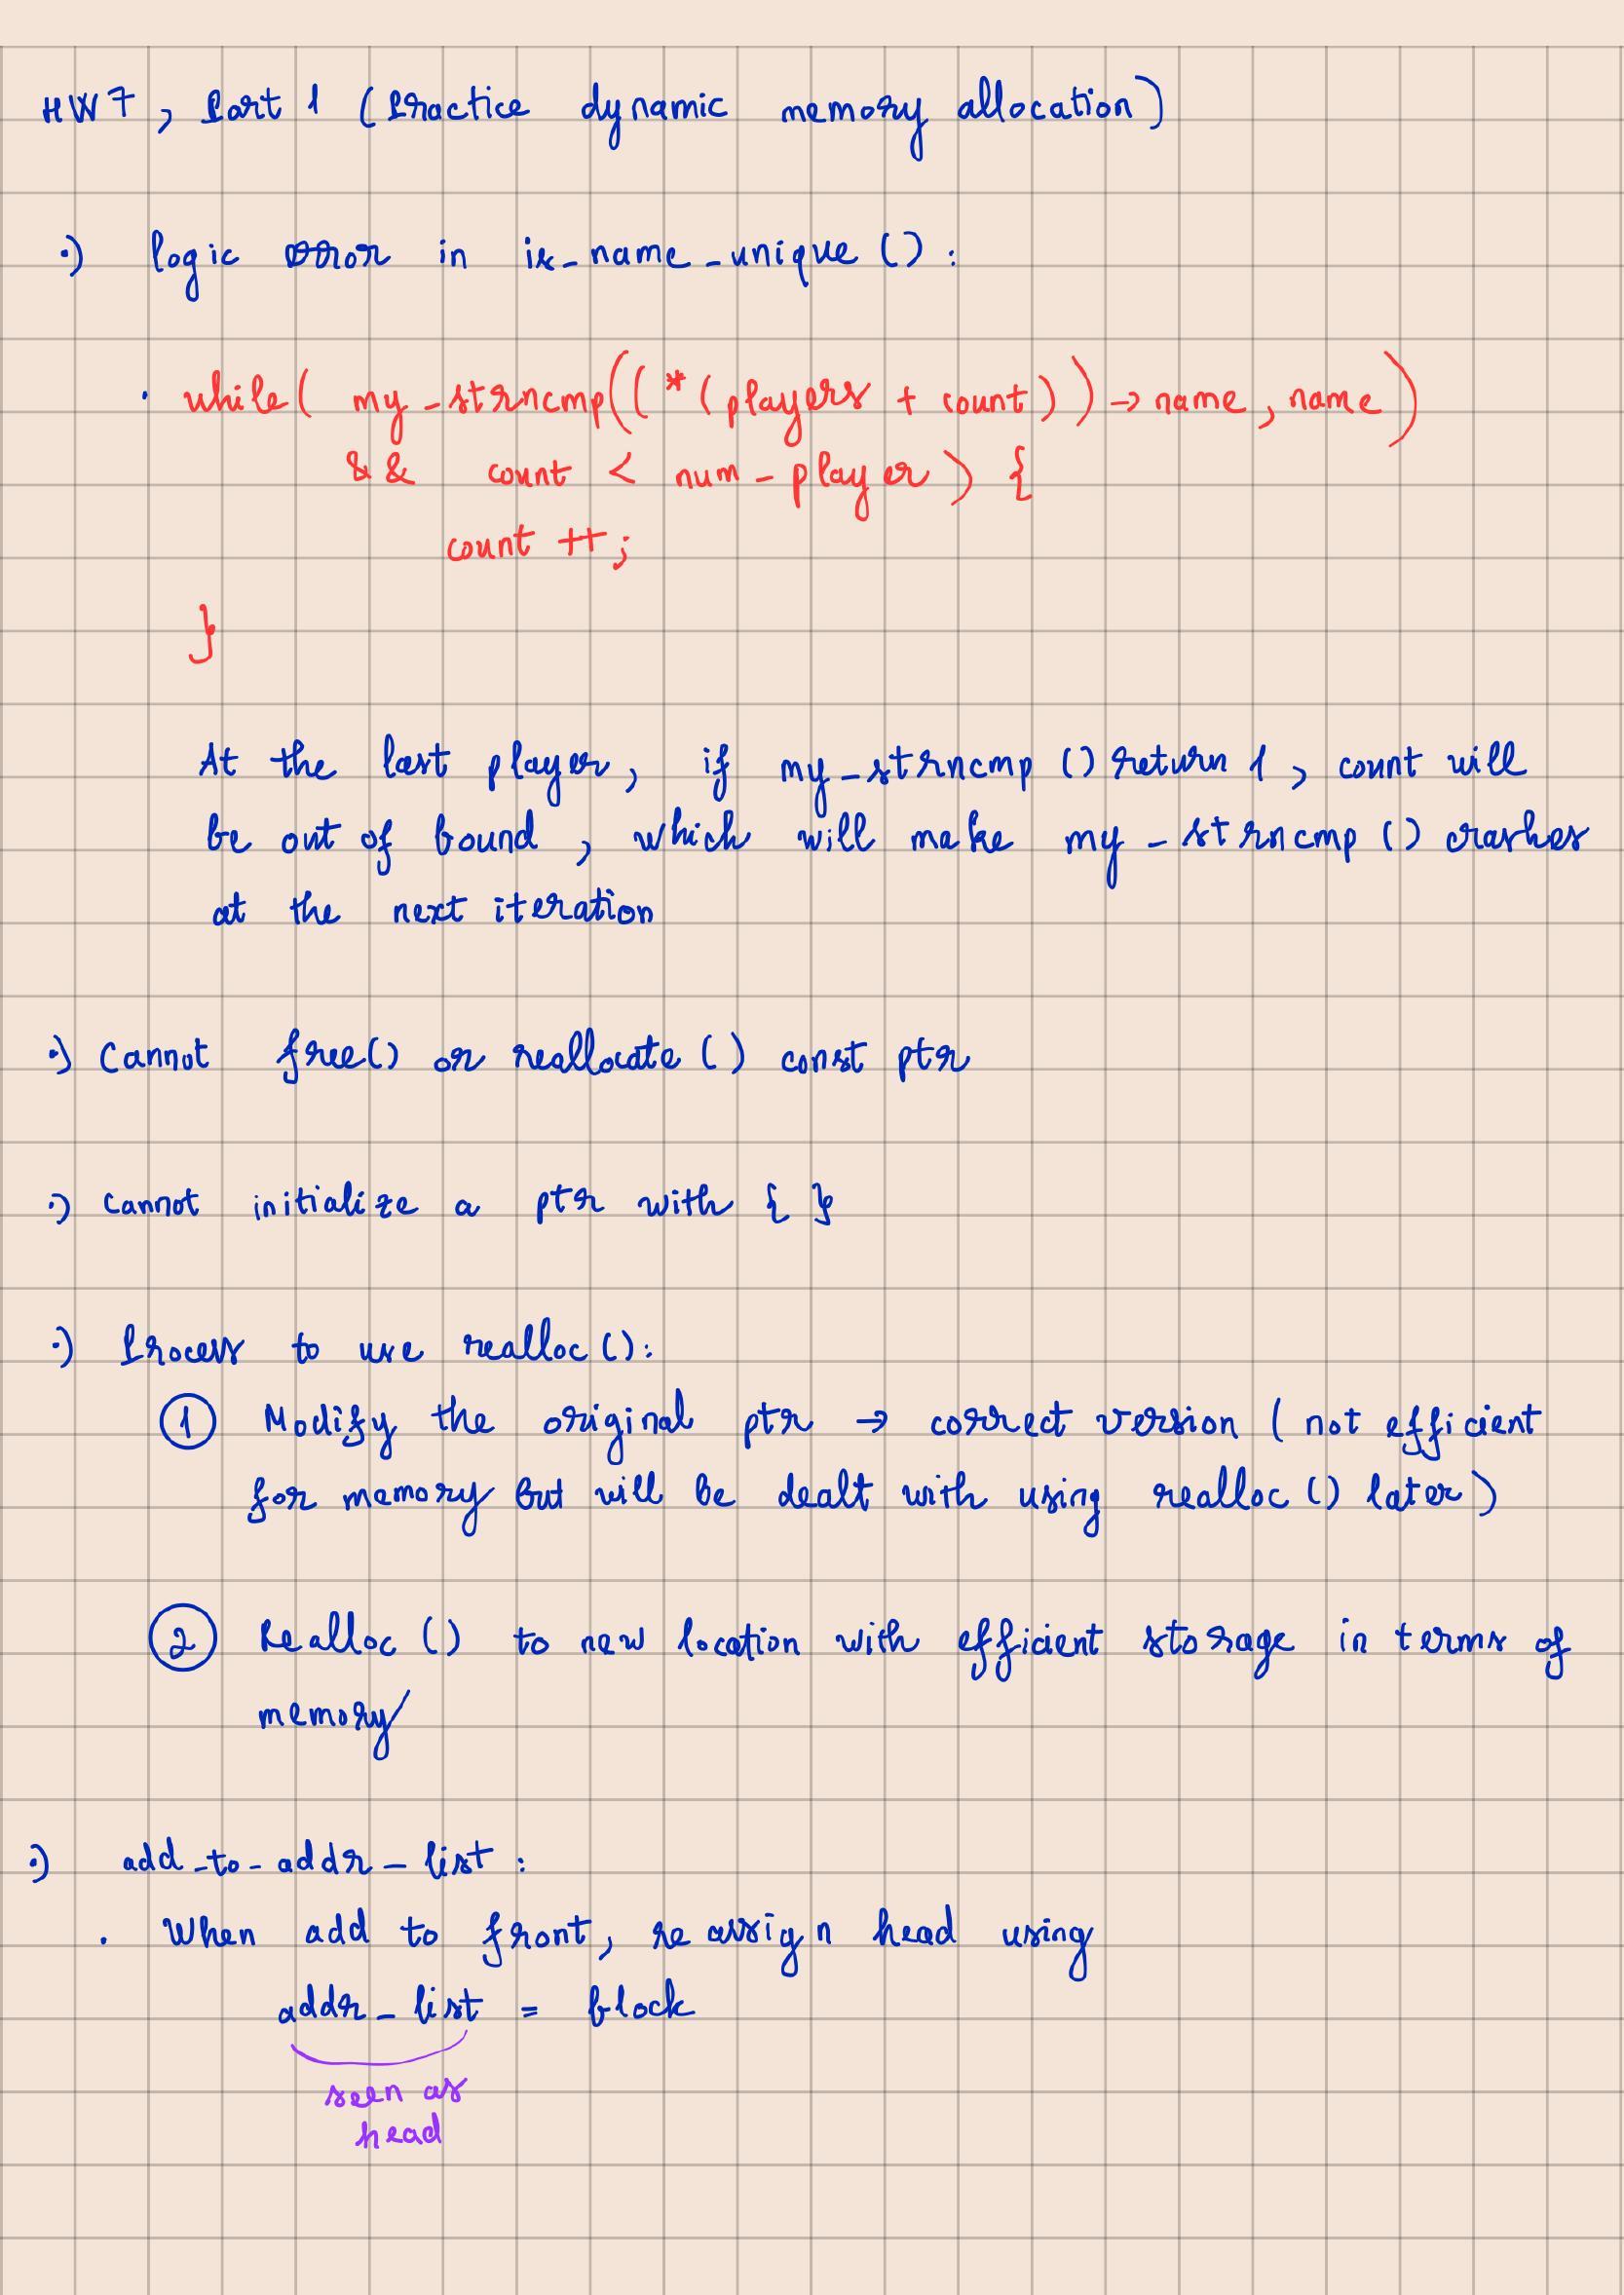 HW7, Part 1 (Practice dynamic memory allocation)
·) Logic error in is_name_unique():
· while( my_strncmp((*(players + count))→name, name)
&& count < num_player) {
count ++;
}
At the last player, if my_strncmp() return 1, count will
be out of bound, which will make my_strncmp() crashes
at the next iteration
·) Cannot free() or reallocate() const ptr
·) Cannot initialize a ptr with { }
·) Process to use realloc():
① Modify the original ptr → correct version (not efficient
for memory but will be dealt with using realloc() later)
② Realloc() to new location with efficient storage in terms of
memory
·) add_to_addr_list:
· When add to front, reassign head using
addr_list = block
seen as
head